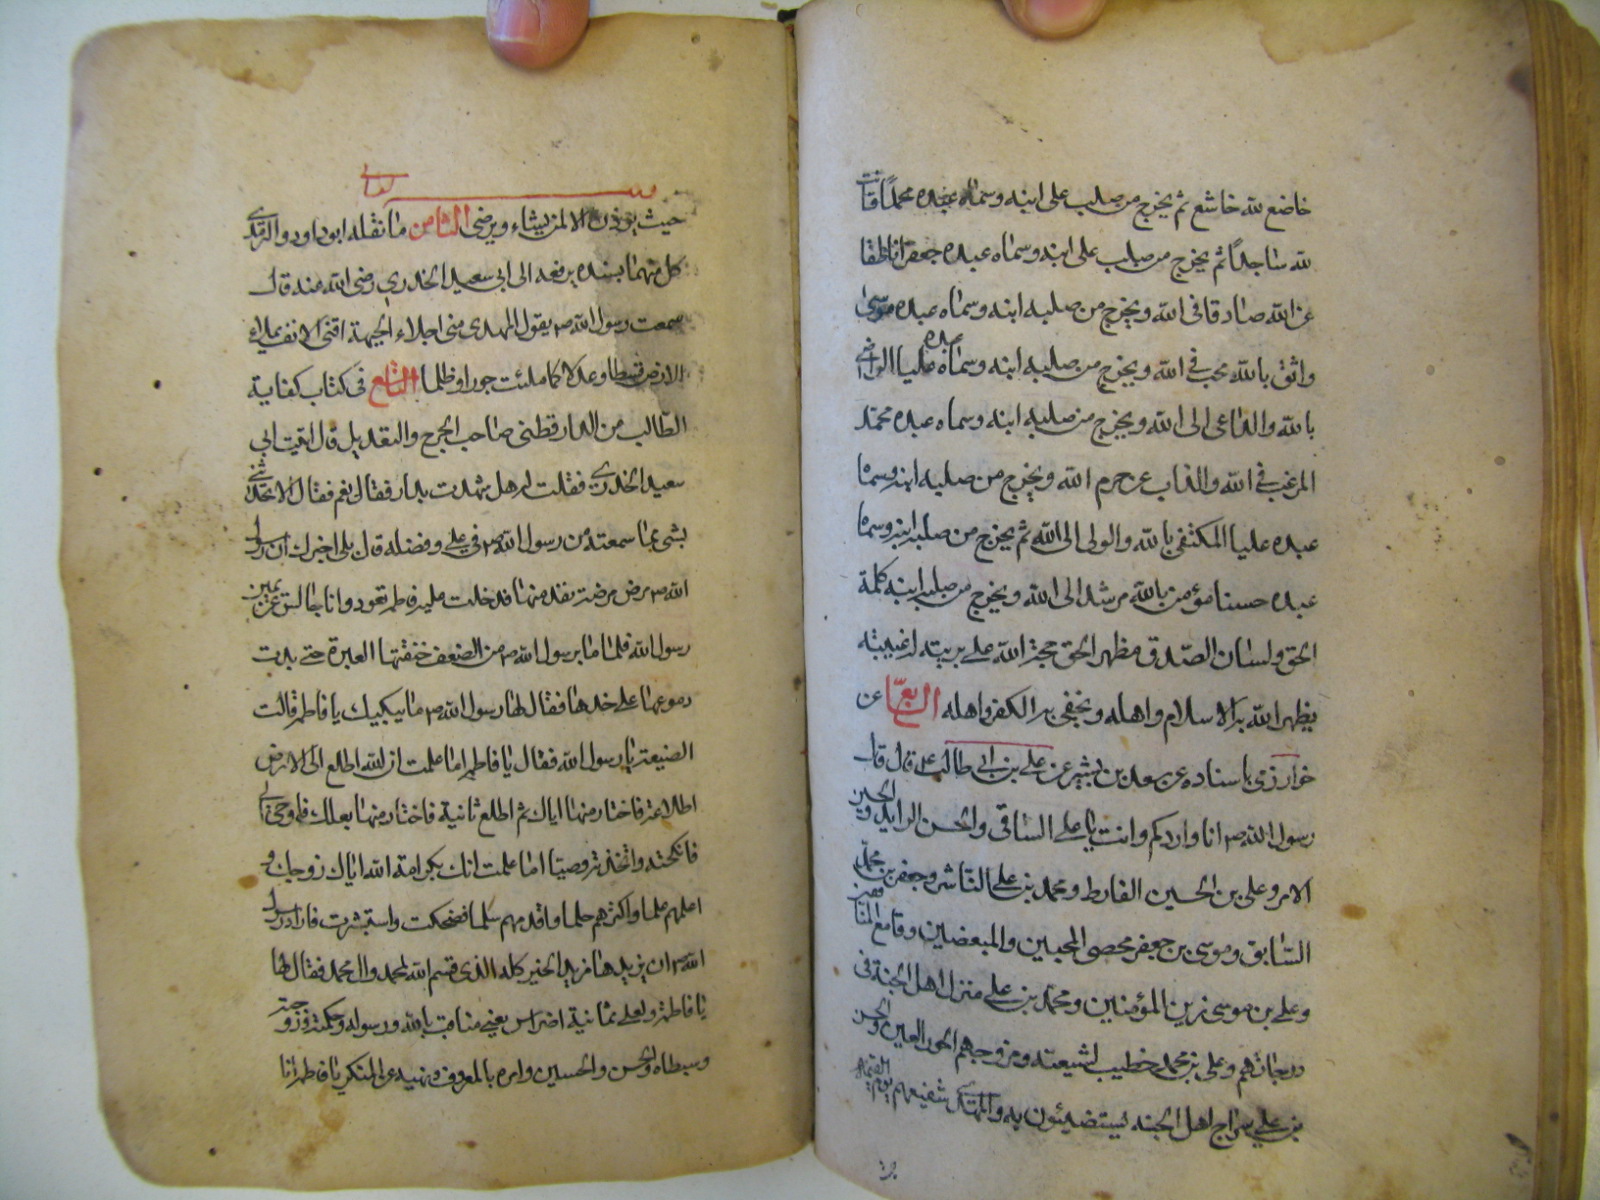 خاضع لله خاشع ثم يخرج من صلب على ابنه وسماه عبده محمدًا قانت
لله ساجدًا ثم يخرج من صلب على ابنه وسماه عبده جعفرا ناطقا
عن الله صادقا فى الله ويخرج من صلبه ابنه وسماه عبده موسى
واثق بالله محب فى الله ويخرج من صلبه ابنه وسماه عبده عليا الراضى
بالله والداعى الى الله ويخرج من صلبه ابنه وسماه عبده محمد
المرغب فى الله والذاب عن حرم الله ويخرج من صلبه ابنه وسماه
عبده عليا المكتفى بالله والولى الى الله ثم يخرج من صلبه ابنه وسماه
عبده حسنا مؤمن بالله مرشد الى الله ويخرج من صلب ابنه كلمة
الحق ولسان الصدق مظهر الحق حجة الله على بريته له غيبته
يظهر الله به الاسلام واهله ويخفى به الكفر واهله السابع عن
خوارزمى باسناده عن سعد بن بشير عن على بن ابى طالب ع قال قال
رسول الله ص انا واردكم وانت يا على الساقى والحسن الرايد والحسين
الامر وعلى بن الحسين الفارط ومحمد بن على الناشر وجعفر بن محمد
السابق وموسى بن جعفر محصى المحبين والمبغضين وقامع المنافقين
وعلى بن موسى زين المؤمنين ومحمد بن على منزل اهل الجنة فى
درجاتهم وعلى بن محمد خطيب لشيعته ومزوجهم الحور العين والحسن
بن على سراج اهل الجنه يستضيئون به والمهدى شفيعهم يوم القيمة
حيث يؤذن الا لمن يشاء ويرضى الثامن ما نقله ابو داود والترمذى
كل منهما بسنده يرفعه الى ابى سعيد الخدرى رضى الله عنه قال
سمعت رسول الله ص يقول المهدى منى اجلاء الجبهة اقنى الانف يملاء
الارض قسطا وعدلا كما ملئت جورا وظلما التاسع فى كتاب كفاية
الطالب عن الدارقطنى صاحب الجرح والتعديل قال اتيت ابى
سعيد الخدرى فقلت له هل شهدت بدار فقال نعم فقال الا تحدثنى
بشى مما سمعته من رسول الله ص فى على وفضله قال بلى اخبرك ان رسول
الله ص مرض مرضة نقه منها فدخلت عليه فاطمه تعوده وانا جالس عن يمين
رسول الله فلما ما برسول الله ص من الضعف خنقتها العبرة حتى بدت
دموعها على خدها فقال لها رسول الله ص ما يبكيك يا فاطمه قالت
الضيعة يا رسول الله فقال يا فاطمه اما علمت ان لله اطلع الى الارض
اطلاعة فاختار منها اباك ثم اطلع ثانية فاختار منها بعلك فاوحى الى
فانكحته واتخذته وصيا اما علمت انك بكرامة الله اياك زوجك و
اعلمهم علما واكثرهم حلما واقدمهم سلما فضحكت واستبشرت فاراد رسول
الله ص ان يزيدها مزيد الخير كله الذى قسم الله لمحمد وال محمد فقال لها
يا فاطمة ولعلى ثمانية اضراس يعنى مناقب بالله ورسوله وحكمته وزوجته
وسبطاه الحسن والحسين وامره بالمعروف ونهيه عن المنكر يا فاطمه انا